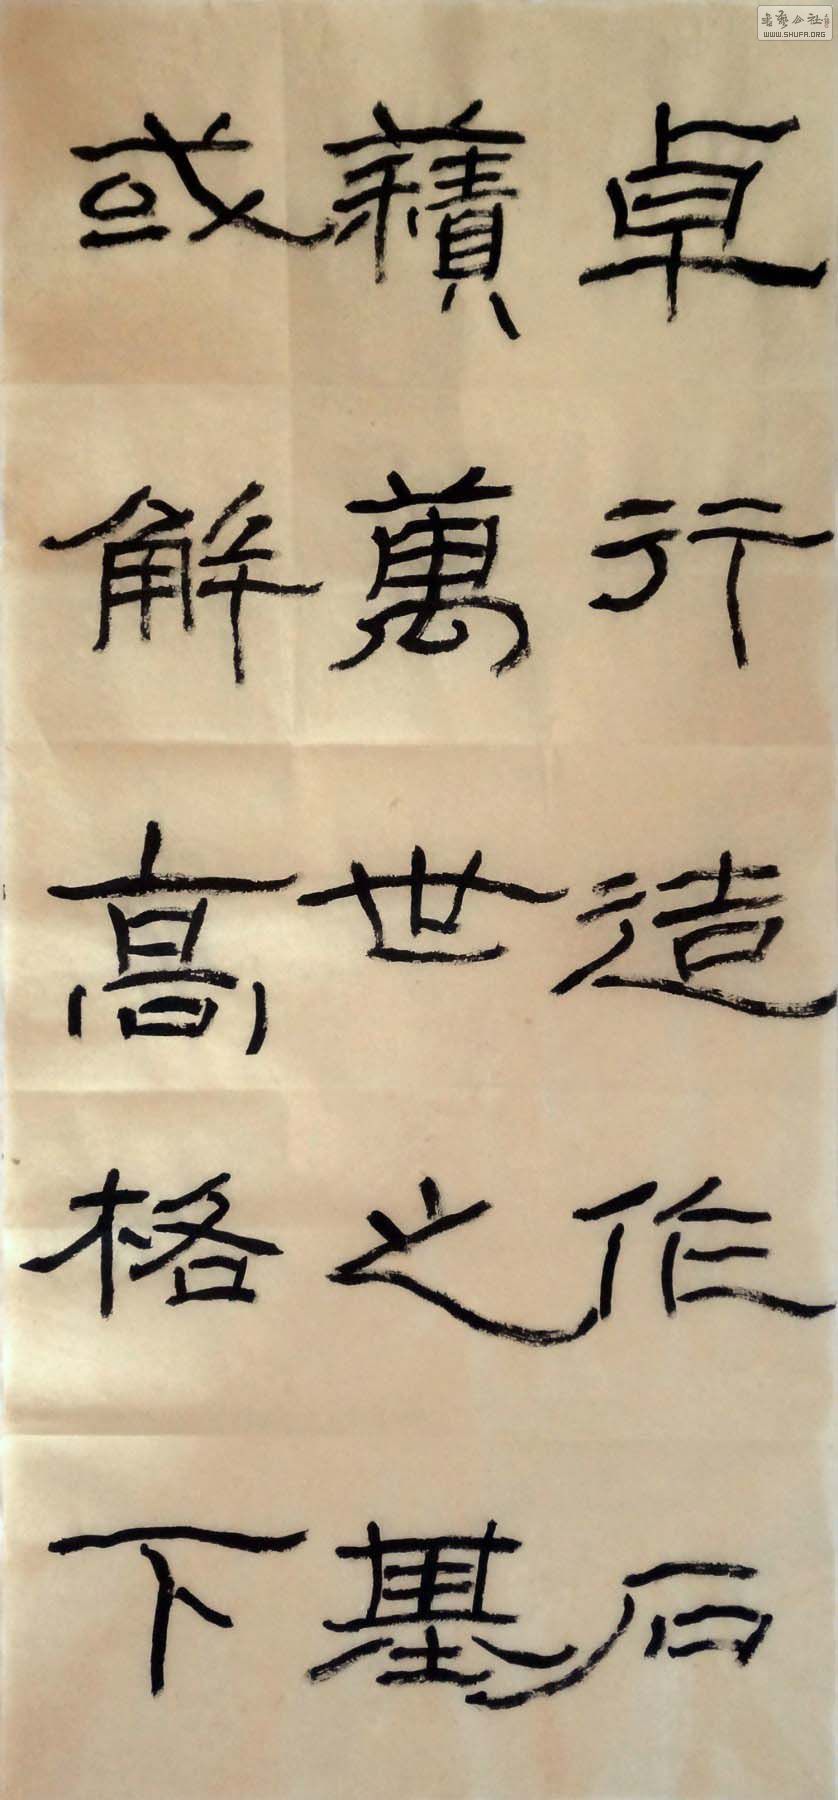 卓行造作石
積萬世之基
或解高格下
書藝公社
WWW.SHUFA.ORG